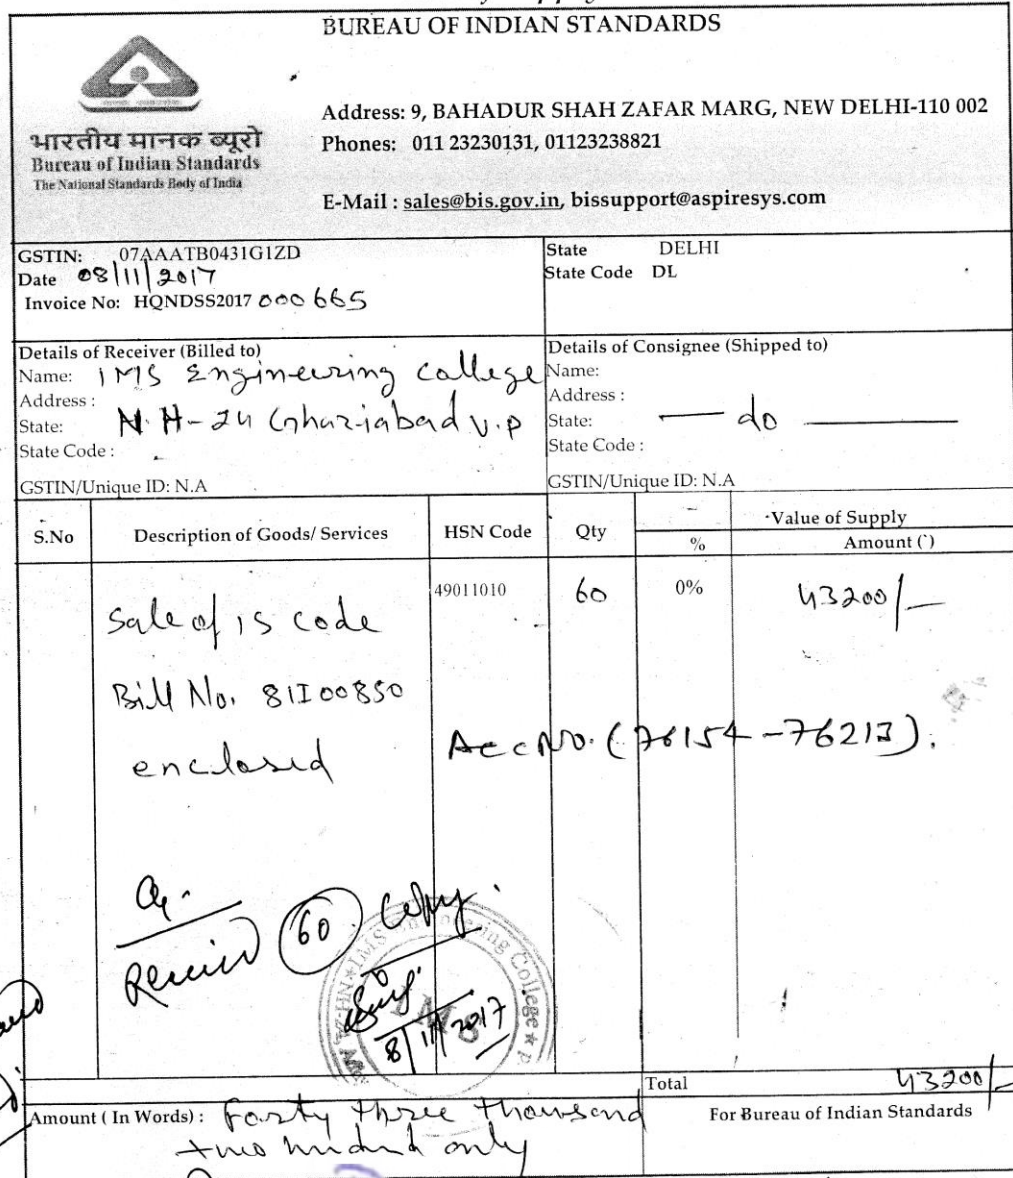 BUREAU OF INDIAN STANDARDS
भारतीय मानक ब्यूरो
Bureau of Indian Standards
The National Standards Body of India
Address: 9, BAHADUR SHAH ZAFAR MARG, NEW DELHI-110 002
Phones: 011 23230131, 01123238821
E-Mail : sales@bis.gov.in, bissupport@aspiresys.com
GSTIN: 07AAATB0431G1ZD
Date 08/11/2017
Invoice No: HQNDSS2017 000665
State DELHI
State Code DL
Details of Receiver (Billed to)
Name: IMS Engineering College
Address :
State: N.H-24 Ghaziabad U.P
State Code :
GSTIN/Unique ID: N.A
Details of Consignee (Shipped to)
Name:
Address :
State: — do —
State Code :
GSTIN/Unique ID: N.A
S.No Description of Goods/ Services HSN Code Qty % Value of Supply
Amount (`)
Sale of IS code 49011010 60 0% 43200/-
Bill No. 81I00850
enclosed
Acc No. (76154-76213).
Received 60 Copy.
IMS Engineering College
IMS
8/11/2017
Total 43200/-
Amount ( In Words) : Forty three thousand
two hundred only
For Bureau of Indian Standards